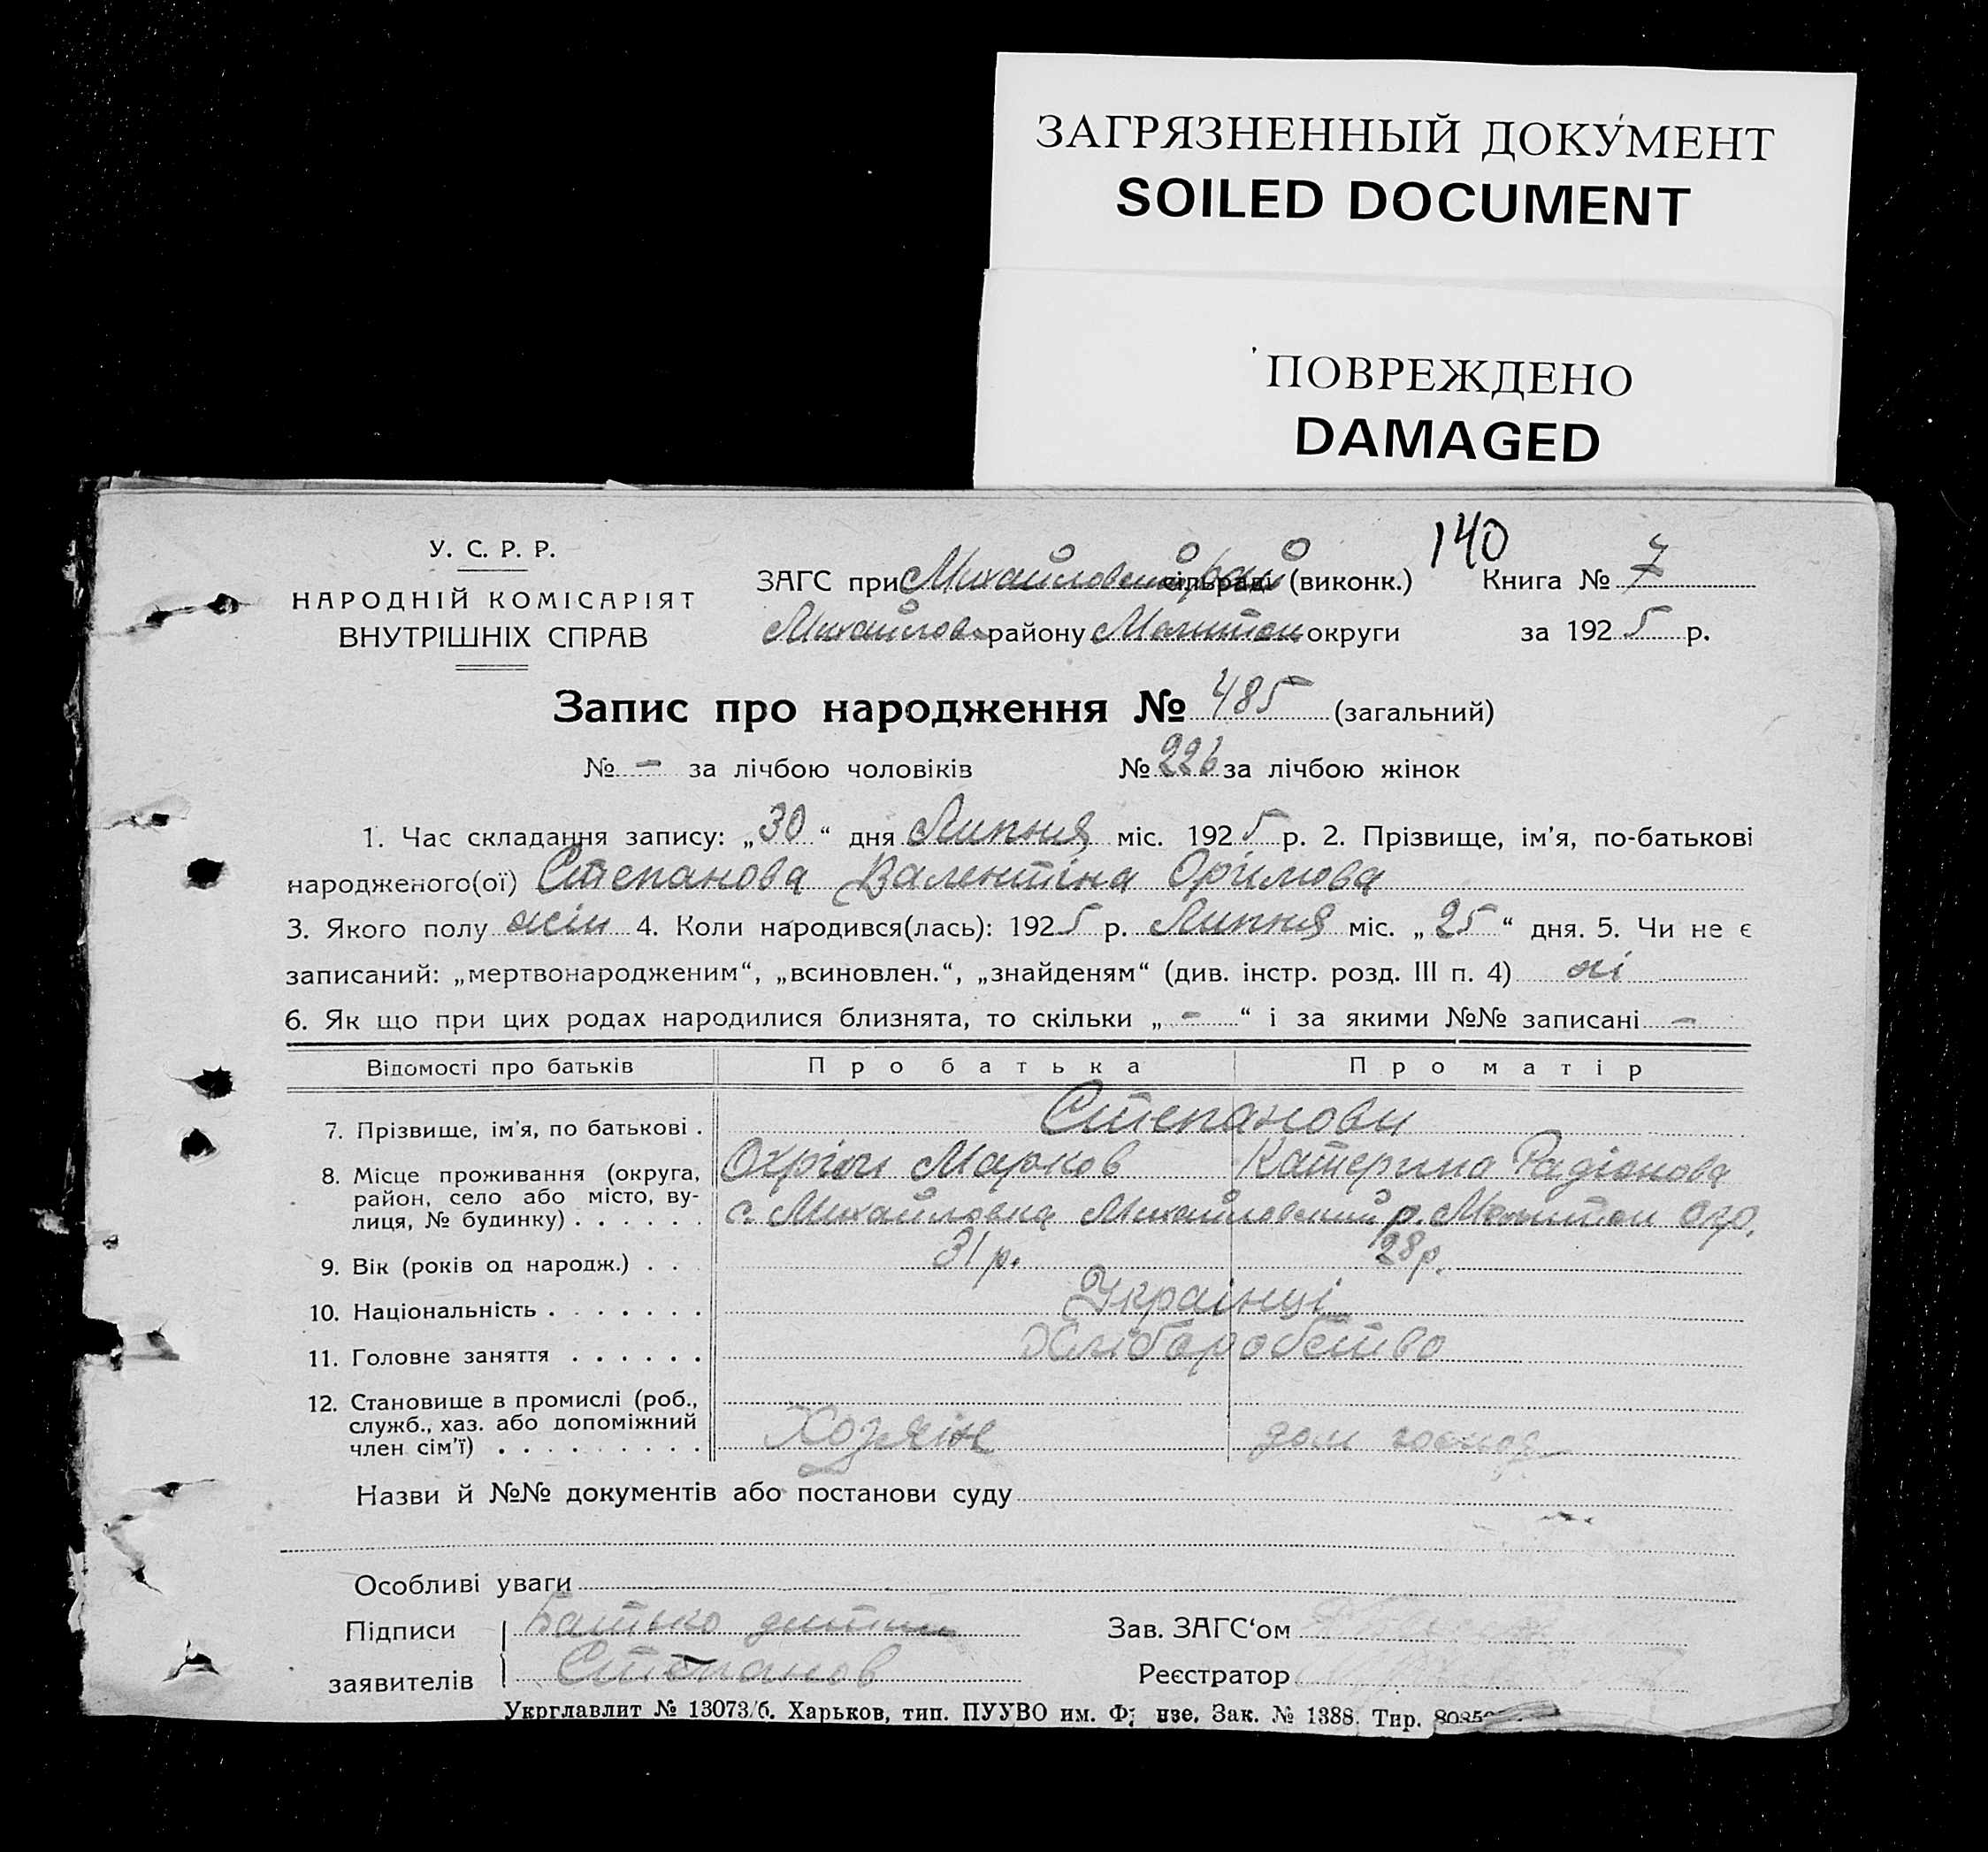 ЗАГРЯЗНЕННЫЙ ДОКУМЕНТ
SOILED DOCUMENT
ПОВРЕЖДЕНО
DAMAGED
140
У. С. Р. Р.
НАРОДНІЙ КОМІСАРІЯТ
ВНУТРІШНІХ СПРАВ
ЗАГС при Михайловский рай сільраді (виконк.) Книга № 7
Михайлов району Мелитоп округи за 1925 р.
Запис про народження № 485 (загальний)
№ - за лічбою чоловіків № 226 за лічбою жінок
1. Час складання запису: „30“ дня Липня міс. 1925 р. 2. Прізвище, ім’я, по-батькові
народженого(ої) Степанова Валентіна
3. Якого полу жін 4. Коли народився(лась): 1925 р. Липня міс. „25“ дня. 5. Чи не є
записаний: „мертвонародженим“, „всиновлен.“, „знайденям“ (див. інстр. розд. III п. 4) ні
6. Як що при цих родах народилися близнята, то скільки „-“ і за якими №№ записані -
Відомості про батьків Про батька Про матір
7. Прізвище, ім’я, по батькові . Степанови
Охрім Марков Катерина Радіонова
8. Місце проживання (округа,
район, село або місто, ву-
лиця, № будинку) . . . . . . с. Михайловка Михайловский р. Мелитоп окр.
9. Вік (років од народж.) . . 31 р. 28 р.
10. Національність . . . . . . . Українці
11. Головне заняття . . . . . . Хліборобство
12. Становище в промислі (роб.,
служб., хаз. або допоміжний
член сім’ї) . . . . . . . . . Хозяїн дом господ
Назви й №№ документів або постанови суду
Особливі уваги
Підписи Батько дитини Зав. ЗАГС‘ом
заявителів Степанов Реєстратор
Укрглавлит № 13073/б. Харьков, тип. ПУУВО им. Ф нзе. Зак. № 1388. Тир.